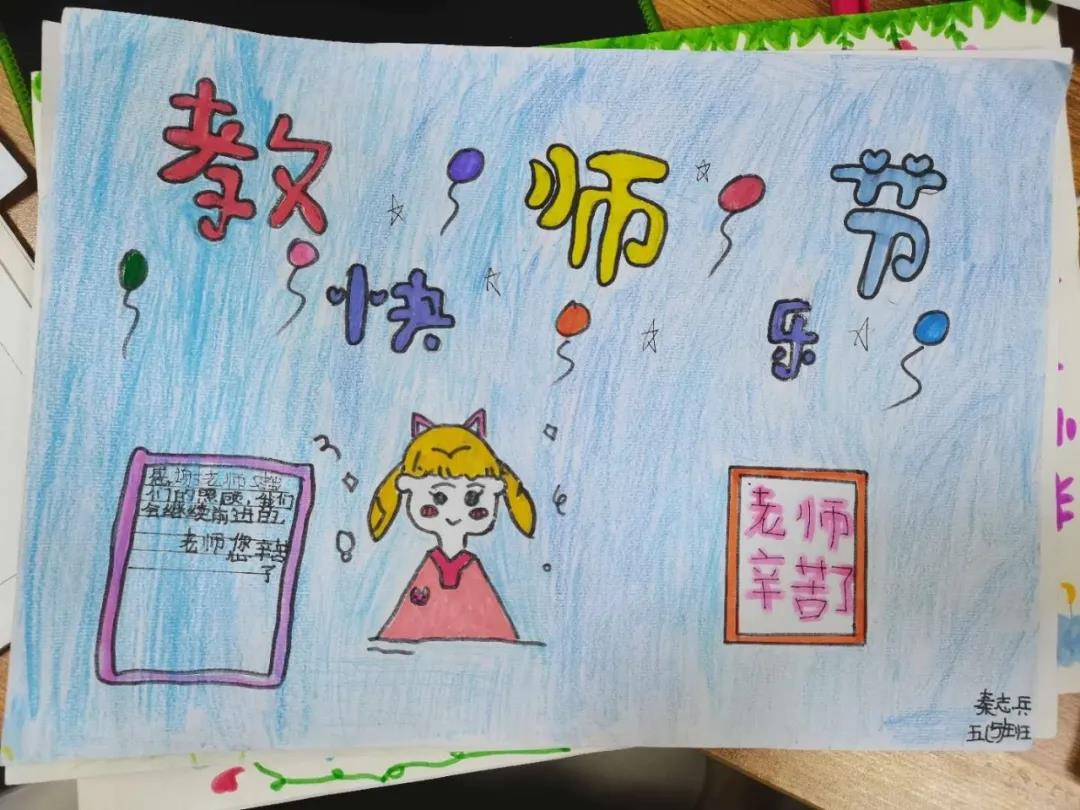 教师节
快乐
感谢老师对我
们的照顾,我们
会继续前进的。
老师您辛苦
了
老师
辛苦了
秦志兵
五(5)班